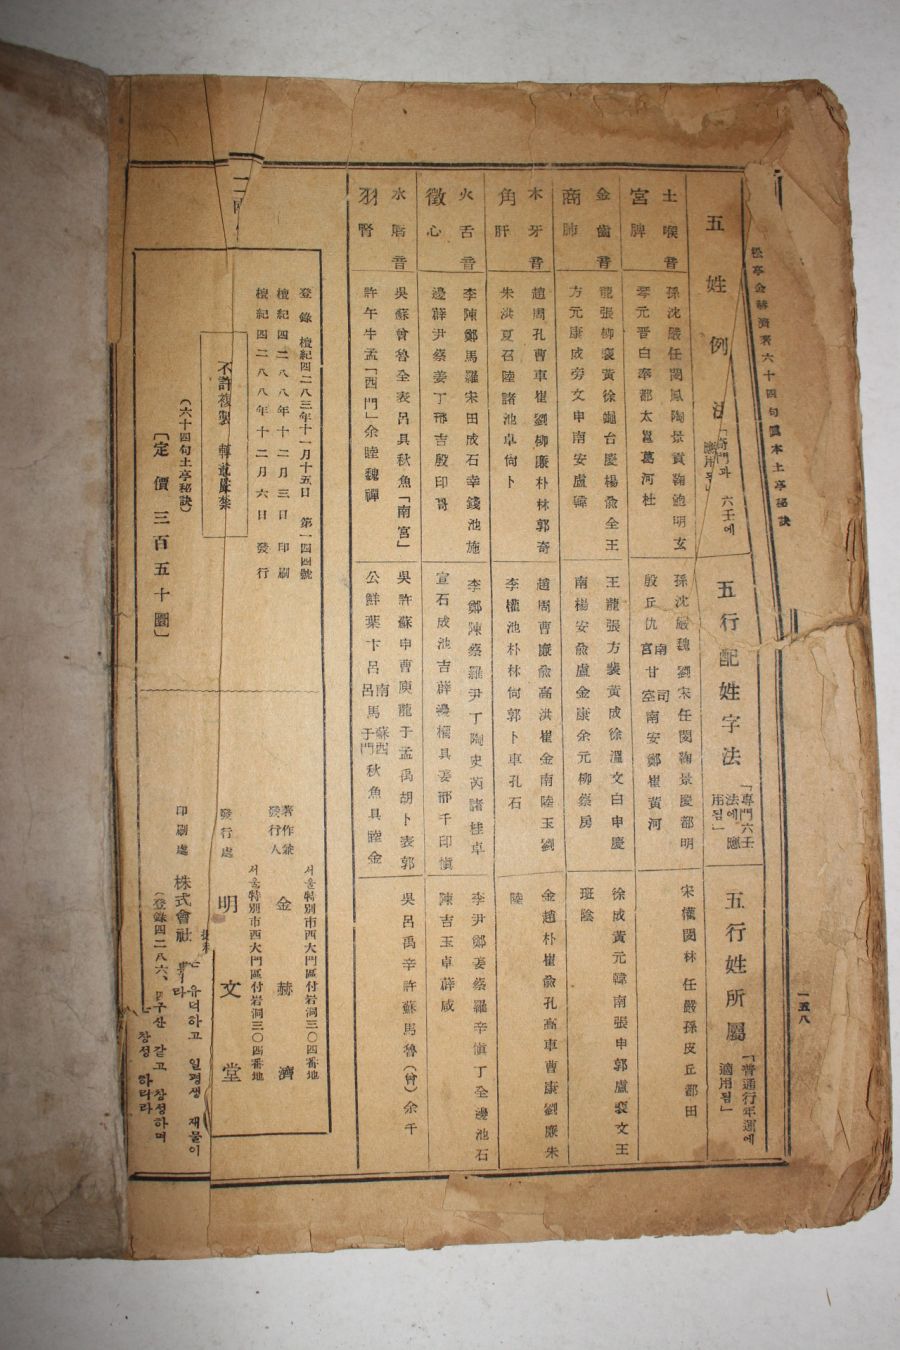 松亭金赫濟著六十四句眞本土亭秘訣
一五八
五姓例法「奇門과 六壬에 應用됨」
五行配姓字法「專門六壬法에應用됨」
五行姓所屬「普通行年運에適用됨」
土喉音
宮脾
孫沈嚴任閔鳳陶景貢鞠 明玄
琴元晋白奉都太 葛河杜
孫沈嚴魏劉宋任閔鞠景慶都明
殷丘仇南宮甘司空南安鄭崔黃河
宋權閔林任嚴孫皮丘都田
金齒音
商肺
龍張柳裵黃徐 台慶楊兪全王
方元康成旁文申南安盧韓
王龍張方裵黃成徐溫文白申慶
南楊安兪盧金康余元柳蔡房
徐成黃元韓南張申郭盧裵文王
班陰
木牙音
角肝
趙周孔曹車崔劉柳廉朴林郭奇
朱洪夏召陸諸池卓尙卜
趙周曹廉兪高洪崔金南陸玉劉
李權池朴林何郭卜車孔石
金趙朴崔兪孔高車曹康劉廉朱
陸
火舌音
徵心
李陳鄭馬羅宋田成石幸錢池施
邊薛尹蔡姜丁邢吉殷印
李鄭陳蔡羅尹丁陶史芮諸桂卓
宣石成池吉薛邊 具姜邢千印愼
李尹鄭姜蔡羅辛愼丁全邊池石
陳吉玉卓薛咸
水脣音
羽腎
吳蘇曾魯全表呂具秋魚「南宮」
許午牛孟「西門」余睦魏禪
吳許蘇申曹庾龍于孟禹胡卜表郭
公鮮葉卞呂南呂馬蘇于西門秋魚具睦金
吳呂禹辛許蘇馬魯(曾)余千
登錄 檀紀四二八三年十一月十五日 第一四四號
檀紀四二八八年十二月三日 印刷
檀紀四二八八年十二月六日 發行
不許複製 轉載嚴禁
(六十四句土亭秘訣)
「定價 三百五十圜」
서울特別市西大門區付岩洞三〇四番地
著作兼發行人 金赫濟
서울特別市西大門區付岩洞三〇四番地
發行處 明文堂
印刷處 株式會社
(登錄四二八六、
유더하고 일평생 재물이
구산 갇고 창성하며
창성 하리라